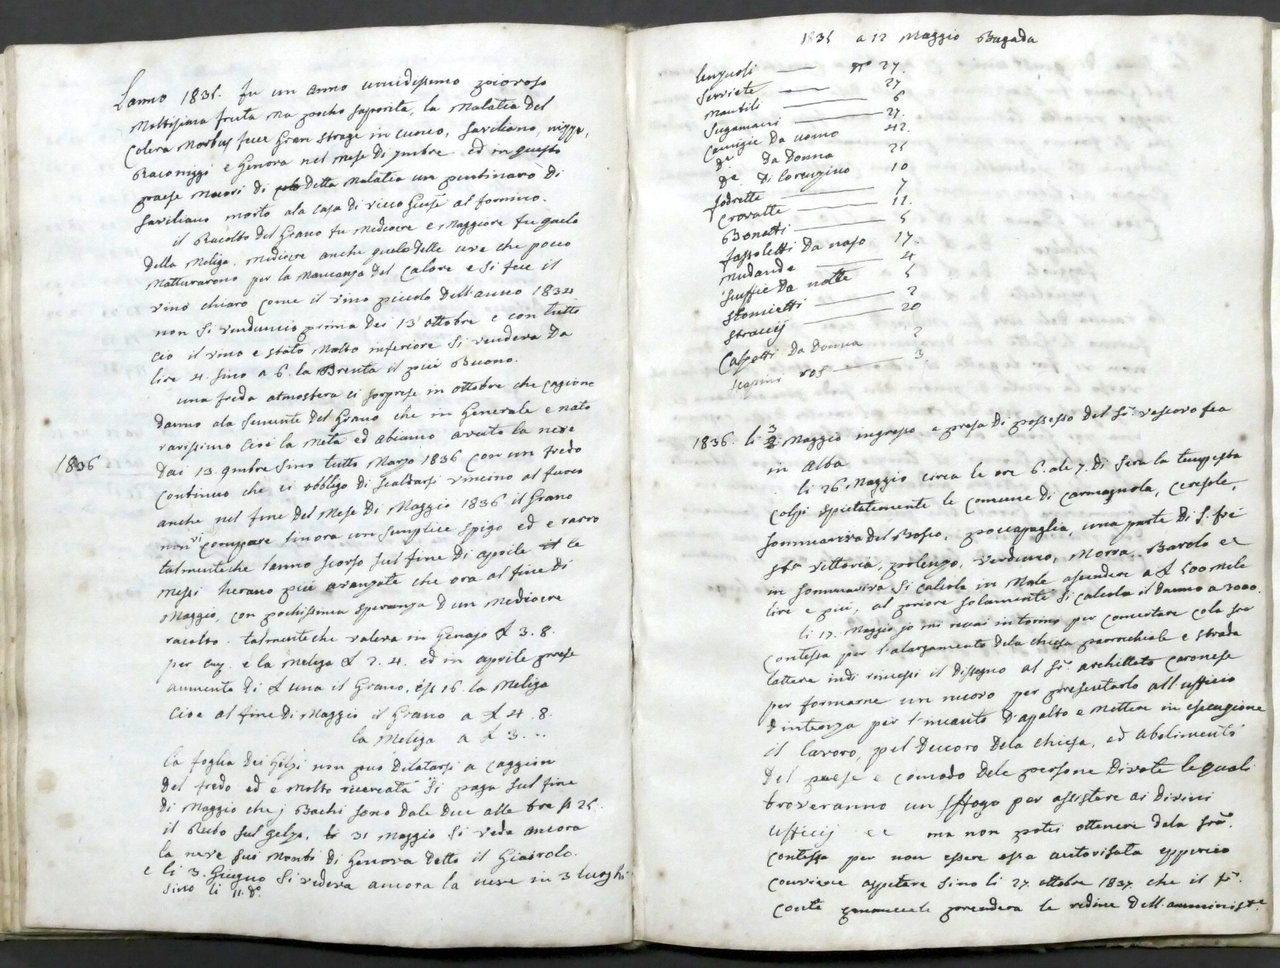 L'anno 1835. fu un anno umidissimo piovoso
Moltissima fruta ma pocho saporita, la Malatia del
Colera Morbus fece Gran strage in Cuneo, Saviliano, nizza,
Raconiggi e Genova nel mese di 7mbre. ed in questo
paese Morì di detta Malatia un pentinaro di
Saviliano morto ala Casa di ricco Giusẽ al fornino.
il Racolto del Grano fu Mediocre e Maggiore fu quelo
della Meliga. Mediocre anche quelo delle uve che poco
Matturarono per la Mancanza del Calore e si fece il
vino chiaro Come il vino piccolo dell'anno 1832
non si vendemiò prima dei 13 ottobre e con tutto
ciò il vino e stato Molto inferiore si vendeva da
lire 4. sino a 6. la Brenta il più Buono.
una freda atmosfera ci sorprese in ottobre che cagionò
danno ala semente del Grano che in Generale e nato
rarissimo cioè la Metà ed abiamo avuto la neve
1836 dai 13. 9mbre sino tutto Marzo 1836 con un fredo
Continuo che ci obbligò di scaldarsi vincino al fuoco
anche nel fine del Mese di Maggio 1836 il Grano
non vi compare sinora un semplice spigo ed e rarro
talmente che l'anno scorso sul fine di aprile le
Messi herano più avanzate che ora al fine di
Maggio, con pochissima speranza d'un Mediocre
racolto. talmente che valeva in Genajo £ 3. 8.
per emj. e la Meliga £ 2. 4. ed in aprile prese
aumento di £ una il Grano, e s. 16. la Meliga
Cioè al fine di Maggio il Grano a £ 4. 8.
la Meliga a £ 3...
la foglia dei Gelsi non può dilatarsi a caggion
del fredo ed e molto ricercata si paga sul fine
di Maggio che j Bachi sono dale due alle tre s. 25.
il Rubo sul gelso, li 31 Maggio si veda ancora
la neve sui Monti di Genova detto il Giarolo.
e li 3. Giugno si vedeva ancora la neve in 3 luoghi
sino li 11. do.
1835 a 12 Maggio Bugada
lenzuoli — No 27.
Serviete — 21
Mantili — 6
Sugamani — 27.
Camigie da uomo 42.
de da Donna 25
de di Lorenzino 10
fodrette — 7
Crovatte — 12.
Bonetti — 5
fassoletti da naso 17.
Mudande — 4
Scuffie da notte 5
Stomietti — 2
stracij — 20
Calzetti da Donna 2
Scapini ros — 3.
1836. li 3 Maggio ingresso e presa di possesso del Sr. vescovo fea
in Alba
li 26 Maggio circa le ore 6. ale 7. di sera la tempesta
Colpì spietatemente le Comune di Carmagnola, Ceresole,
Sommariva del Bosco, poccapaglia, una parte di S. fré
Sta. Vittoria, polenzo, Verduno, Morra, Barolo ec
in Sommariva si calcola in Male ascendere a £ 500 mile
lire e più, al priore solamente si calcola il danno a 3000.
li 17. Maggio jo mi recai in torino per concertare cola Sra
Contessa per l'alargamento dela chiesa parrochiale e strada
lattera indi rimessi il disegno al Sr. architteto Caronese
per formarne un nuovo per presentarlo all'uffizio
d'intenza per l'incanto d'apalto e mettere in esecuzione
il lavoro, pel decoro dela chiesa, ed abolimento
del paese e comodo dele persone divote le quali
troveranno un sffogo per assistere ai Divini
Ufficij ec ma non potei ottenere dela Sra.
Contessa per non essere essa autorisata epperciò
conviene aspetare sino li 27. ottobre 1837. che il Sr.
Conte Emanuele prenderà le redine dell'amministe.